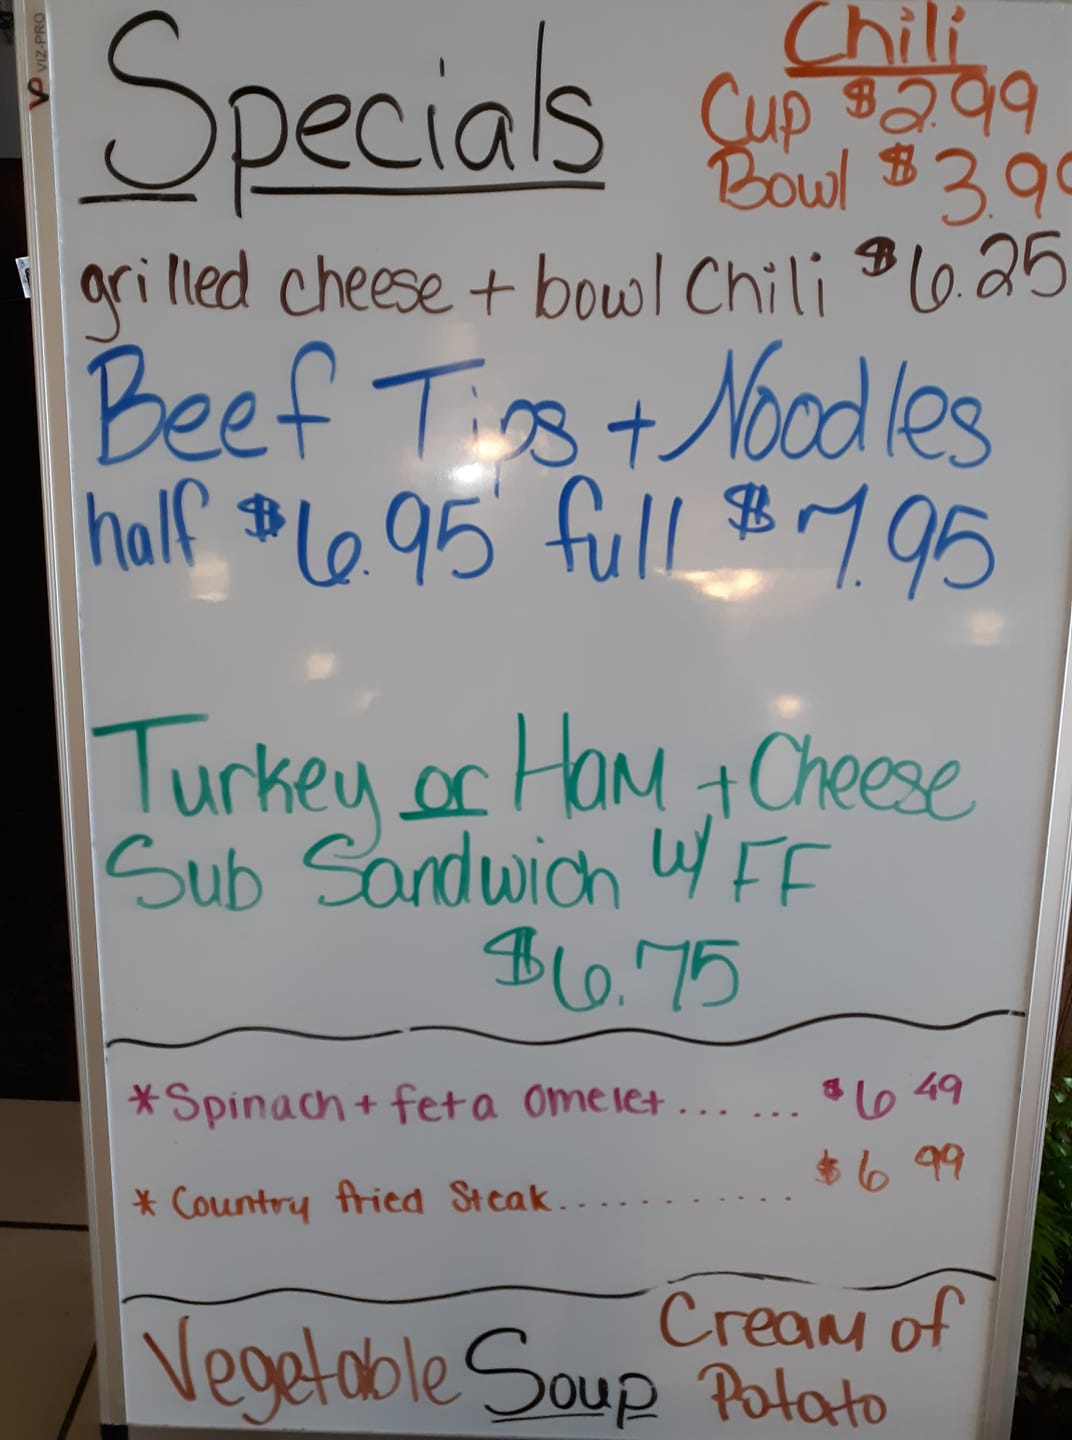 VIZ-PRO
Specials
Chili
Cup $2.99
Bowl $3.99
grilled cheese + bowl Chili $6.25
Beef Tips + Noodles
half $6.95 full $7.95
Turkey or Ham + Cheese
Sub Sandwich w/ FF
$6.75
*Spinach + feta Omelet......  $6 49
* Country fried Steak........... $6 99
Vegetable Soup Cream of
Potato